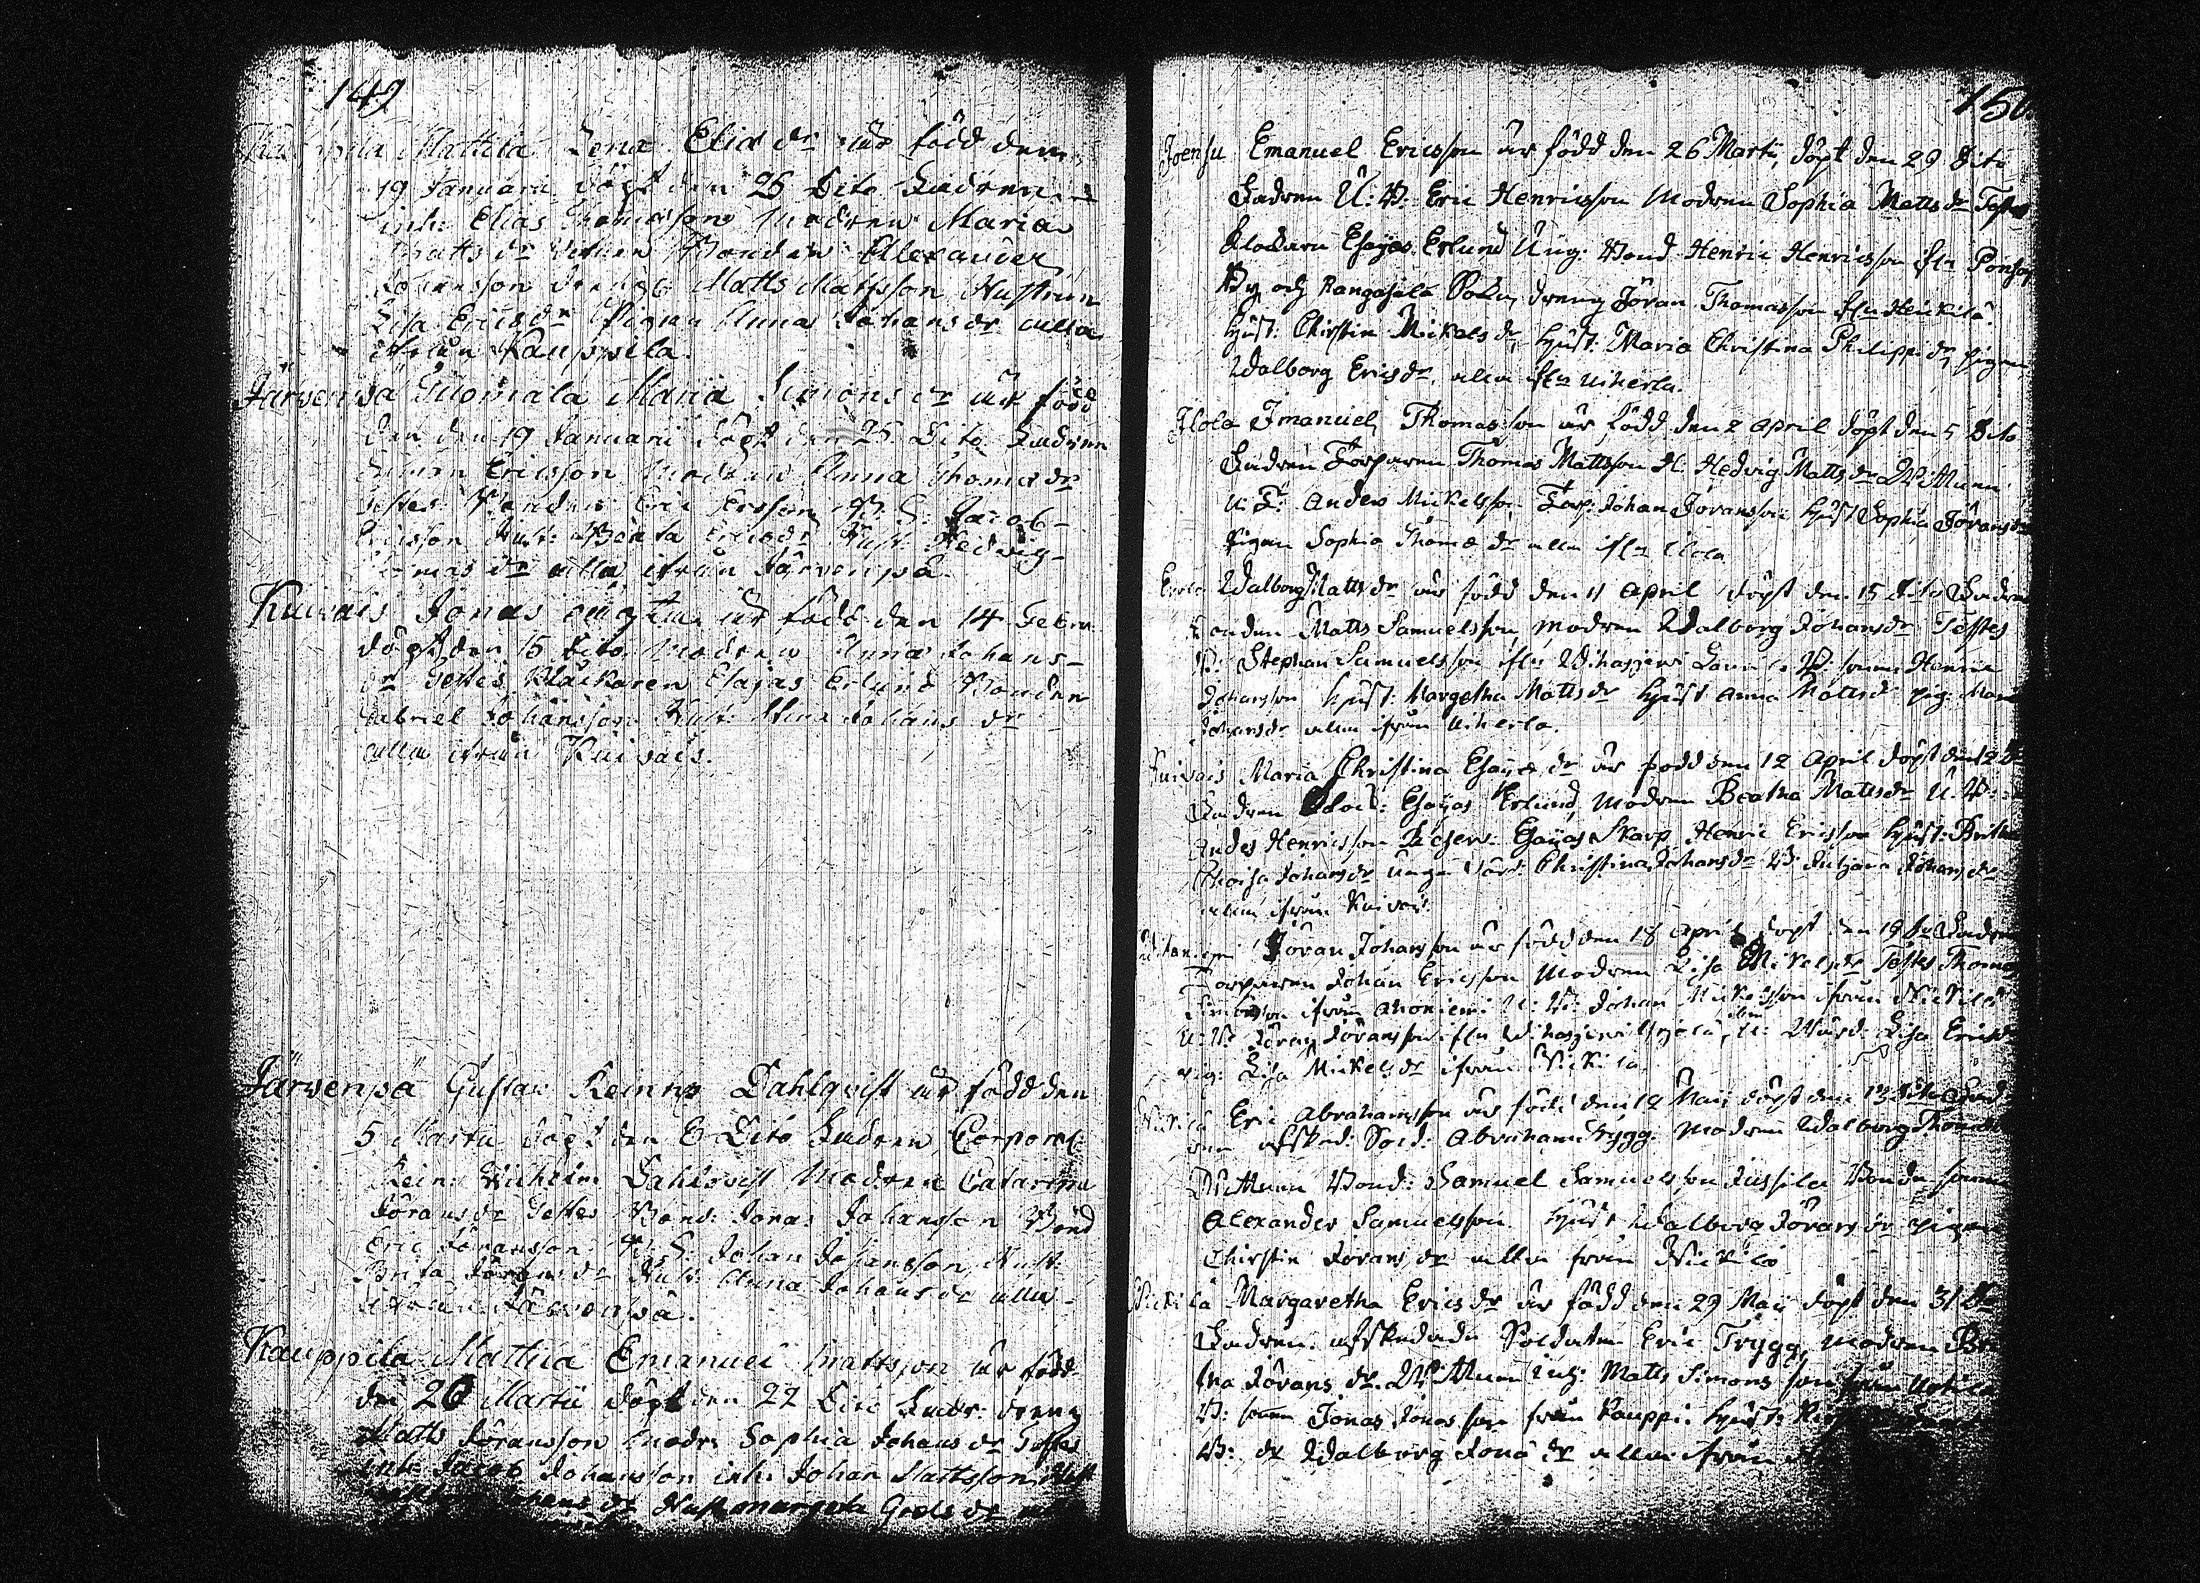 149
Kauppila Mattila Lena Eliæ dr är född den
19 Januarii döpt den 26 Dito Fadren
inh: Elias Thomasson Modren Maria
Matts dr Vittnen Bonden Alexander
Johansson dräng Matts Mattsson Hustrun
Lisa Erics dr Pigan Anna Johans dr alla
ifrån Kauppila.
Järvenpä Tuomala Maria Simons dr är född
den 19 Januarii döpt den 25 Dito Fadren
Simon Ericsson Modren Anna Thomæ dr
Testes Bonden Eric Ersson B: S: Jacob
Ericsson Hust: Beata Erics dr Hust: Hedvig
Thomas dr alla ifrån Järvenpä.
Kuivais Jonas oägta är född den 14 Febru:
döpt den 15 Dito Modren Anna Johans
dr Testes Klåckaren Esajas Erlund Bonden
Gabriel Johansson Hust: Stina Johans dr
alla ifrån Kuivais.
Järvenpä Gustav Reinh: Dahlqvist är född den
5 Martii döpt den 6 Dito Fadren Corporal
Rein: Wilhelm Dahlqvist Modren Catarina
Jörans dr Testes Bond: Jonas Johansson Bond
Eric Jöransson B: S: Johan Johansson Hust:
Brita Jörans dr Hust: Anna Johans dr alla
ifrån Järvenpä.
Kauppila Mattila Emanuel Mattsson är född
den 20 Martii döpt den 22 Dito Fadr: dreng
Matts Jöransson Modr: Sophia Johans dr Testes
inh: Jacob Johansson inh: Johan Mattsson Hust
Johans dr Hust Margeta Grels dr
150
Joensu Emanuel Ericsson är född den 26 Martii, döpt den 29 Dito
Fadren U: B: Eric Henricsson Modren Sophia Matts dr Testes
Klockarn Esajas Erlund Ung: Bond Henric Henricsson ifn
By och Kangasala Sokn, dreng Jöran Thomasson ifn Heikilä
Hust: Chirstin Mickels dr, Hust: Maria Christina Philippi dr, pigan
Walborg Erics dr, alla ifn Uiherla.
Ilola Imanuel Thomasson är född den 2 April döpt den 5 Dito
Fadren Torparen Thomas Mattsson H: Hedvig Matts dr Wittnen
U: T: Anders Mickelsson Torp: Johan Jöransson Hust Sophia Jörans dr
Pigan Sophia Thomæ dr alla ifn Ilola
Walborg Matts dr är född den 11 April döpt den 15 Dito Fadren
Bonden Matts Samuelsson, Modren Walborg Johans dr Testes
B: Stephan Samuelsson ifn Wihasjervi B: sonen Henric
Johansson Hust: Margetha Matts dr Hust Anna Matts dr pig: Maria
Johans dr alla ifrån Uiherla.
Kuivais Maria Christina Esajæ dr är född den 12 April döpt den 12 Do
Fadren Kloc: Esajas Erlund, Modren Beatha Matts dr U: B:
Anders Henricsson Reserv: Esajas Skarp, Henric Ericsson Hust: Britha
Johans dr unga Christina Johans dr B: Johans dr
alla ifrån Kuivais.
Jöran Johansson är född den 18 April döpt den 19 Do Fadren
Torparen Johan Ericsson Modren Lisa Mickels dr Testes Thomas
Simonsson ifrån Ahoniemi U: B: Johan Mickelsson ifrån Nickilä
U: B: Jöran Jöransson ifn Wihasjervi Lisa Erics dr
pig: Lisa Mickels dr ifrån Nickilä
Nickilä Eric Abrahamsson är född den 12 Maij döpt den 13 Dito Fad-
ren afsked: Sold: Abraham Trygg. Modren Walborg Thomæ dr
Wittnen Bond: Samuel Samuelsson Jussila Bonde sonen
Alexander Samuelsson Hust Walborg Jörans dr pigan
Chirstin Jörans dr alla från Nickilä
Nickilä Margaretha Erics dr är född den 29 Maij döpt den 31 Do
Fadren afskedade Soldaten Eric Trygg, Modren Bri-
tha Jörans dr. Wittnen Matts Simonsson från
B: sonen Jonas Jonasson från Kauppi. Hust:
B: dr Walborg Jonæ dr alla ifrån